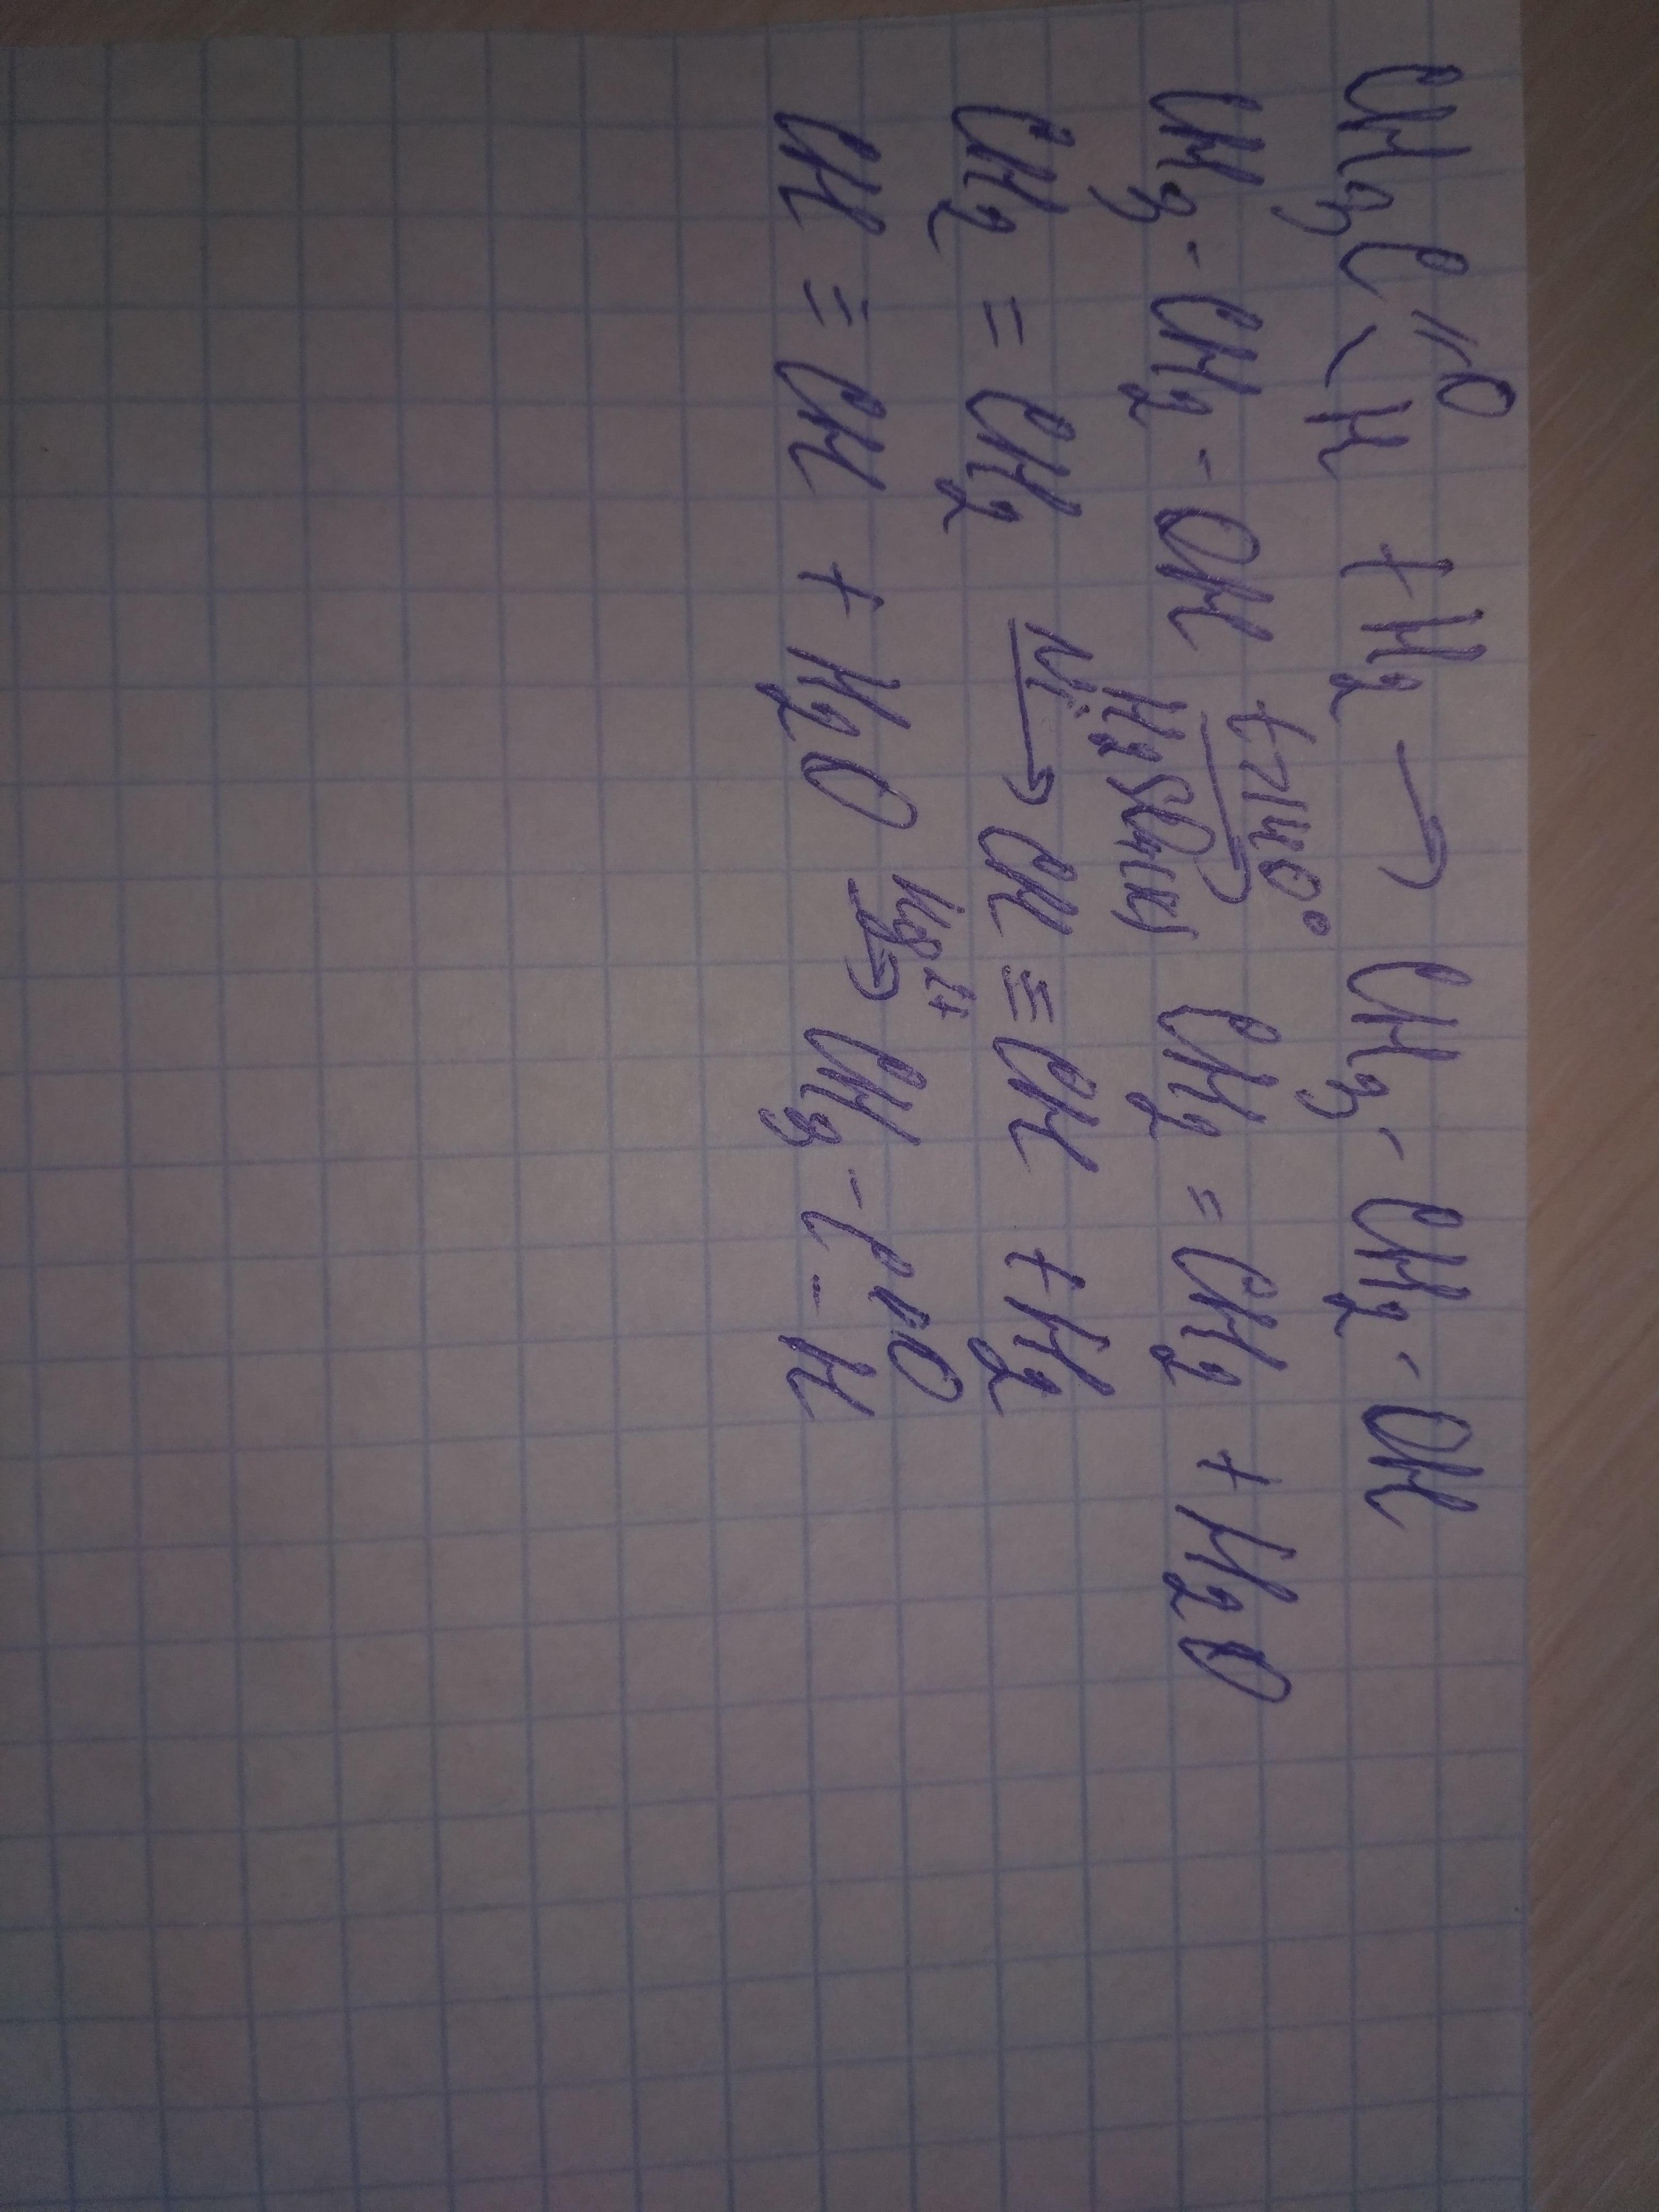 CH₃C=O \ H + H₂ → CH₃-CH₂-OH
CH₃-CH₂-OH t>140° → H₂SO₄(к) CH₂=CH₂ + H₂O
CH₂=CH₂ Ni → CH≡CH + H₂
CH≡CH + H₂O Hg²⁺ → CH₃-C=O - H